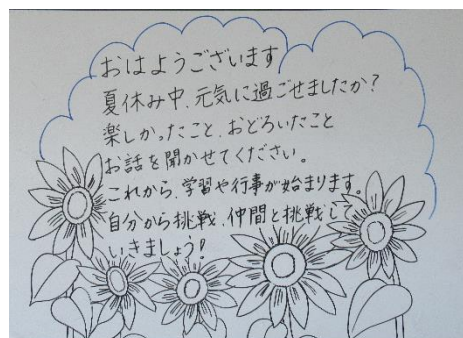 おはようございます
夏休み中、元気に過ごせましたか?
楽しかったこと、おどろいたこと
お話を聞かせてください。
これから、学習や行事が始まります。
自分から挑戦、仲間と挑戦して
いきましょう!